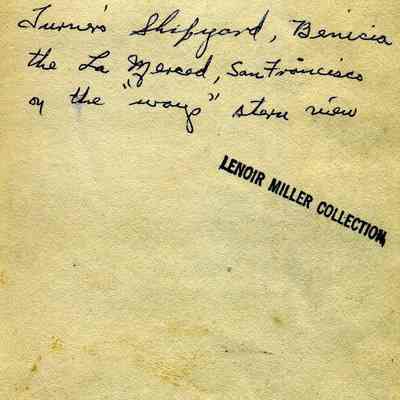 Turner's Shipyard, Benicia
the La Merced, San Francisco
on the "ways" stern view
LENOIR MILLER COLLECTION